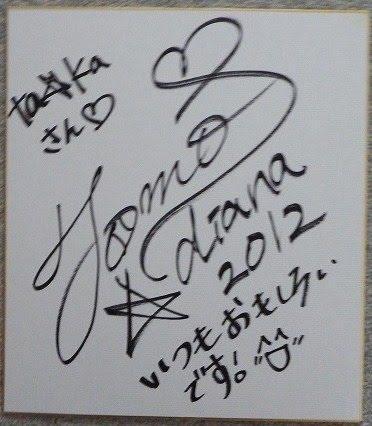 ta☆ka
さん♡
Yoomo
diana
2012
いつもおもしろい
です!